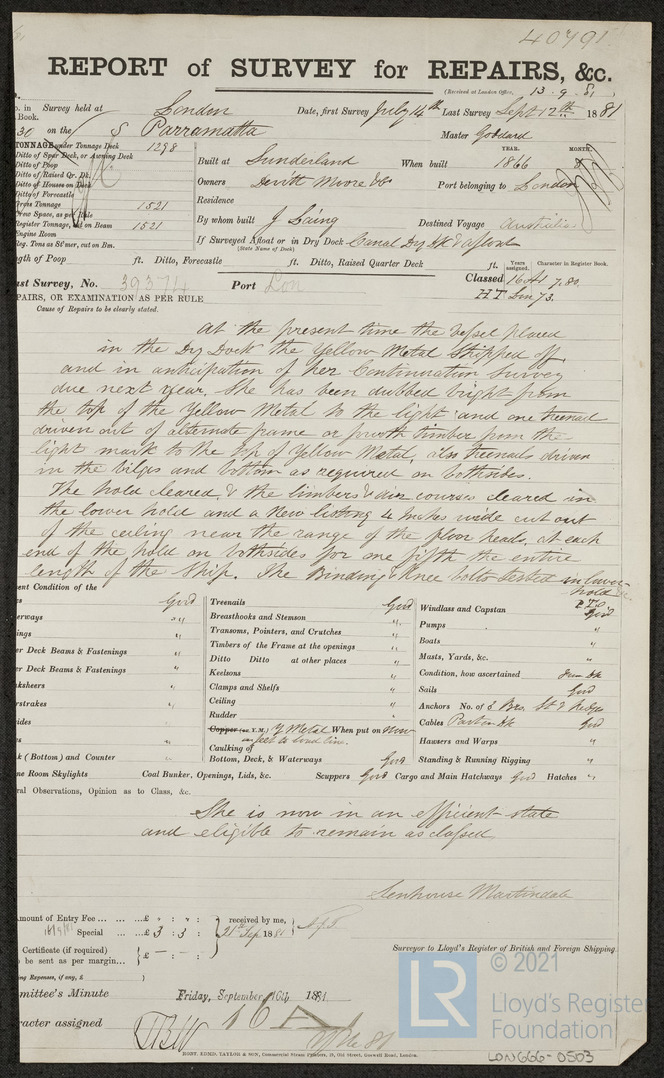 40791
REPORT of SURVEY for REPAIRS, &c.
(Received at London Office, 13.9.81)
o. in Survey held at London Date, first Survey July 14th Last Survey Sept 12th 1881
Book.
30 on the S Parramatta Master Goddard
TONNAGE under Tonnage Deck 1298
Ditto of Spar Deck, or Awning Deck
Ditto of Poop
Ditto of Raised Qr. Dk.
Ditto of Houses on Deck
Ditto of Forecastle
Gross Tonnage 1521
Crew Space, as per Rule
Register Tonnage, cut on Beam 1521
Engine Room
Reg. Tons as St'mer, cut on Bm.
YEAR. MONTH.
Built at Sunderland When built 1866
Owners Devitt Moore & Co Port belonging to London
Residence
By whom built J Laing Destined Voyage Australia
If Surveyed Afloat or in Dry Dock Canal Dry Dk & afloat
(State Name of Dock)
ngth of Poop ft. Ditto, Forecastle ft. Ditto, Raised Quarter Deck ft.
Years assigned. Character in Register Book.
ast Survey, No. 39374 Port Lon Classed 16 A1 7.80
HT Lon 73.
PAIRS, OR EXAMINATION AS PER RULE
Cause of Repairs to be clearly stated.
At the present time the Vessel placed
in the Dry Dock the Yellow Metal Stripped off
and in anticipation of her Continuation Survey
due next year. She has been dubbed bright from
the top of the Yellow Metal to the light and one treenail
driven out of alternate frame or fourth timber from the
light mark to the top of Yellow Metal, also treenails driven
in the bilges and bottom as required on bothsides.
The hold cleared, & the limbers & air courses cleared in
the lower hold and a New listing 4 inches wide cut out
of the ceiling near the range of the floor heads, at each
end of the hold on bothsides for one fifth the entire
length of the Ship. The Binding & Knee bolts tested in lower-
hold
P.T.O.
ent Condition of the
s Good
erways "
ings "
er Deck Beams & Fastenings "
er Deck Beams & Fastenings "
nksheers "
erstrakes "
ides "
s "
k (Bottom) and Counter "
ne Room Skylights
Treenails Good
Breasthooks and Stemson "
Transoms, Pointers, and Crutches "
Timbers of the Frame at the openings "
Ditto Ditto at other places "
Keelsons "
Clamps and Shelfs "
Ceiling "
Rudder "
Copper (or Y.M.) Y Metal When put on now
feet to load line.
Caulking of
Bottom, Deck, & Waterways Good
Windlass and Capstan Good
Pumps "
Boats "
Masts, Yards, &c. "
Condition, how ascertained from Dk
Sails Good
Anchors No. of 3 Brs. St 2 Kedge
Cables Part in Dk Good
Hawsers and Warps "
Standing & Running Rigging "
Coal Bunker, Openings, Lids, &c. Scuppers Good Cargo and Main Hatchways Good Hatches "
ral Observations, Opinion as to Class, &c.
She is now in an efficient state
and eligible to remain as classed
Senhouse Martindale
Surveyor to Lloyd's Register of British and Foreign Shipping
mount of Entry Fee ... ... ...£ " : " :
16/9/81 Special ... ...£ 3 : 3 : received by me,
21st Sep 1881
Certificate (if required)
be sent as per margin...
ing Expenses, if any, £
mmittee's Minute Friday, September 16th 1881.
racter assigned 16 A 1
ROBT. EDMD. TAYLOR & SON, Commercial Steam Printers, 19, Old Street, Goswell Road, London.
LR
© 2021
Lloyd's Register
Foundation
LON666-0503